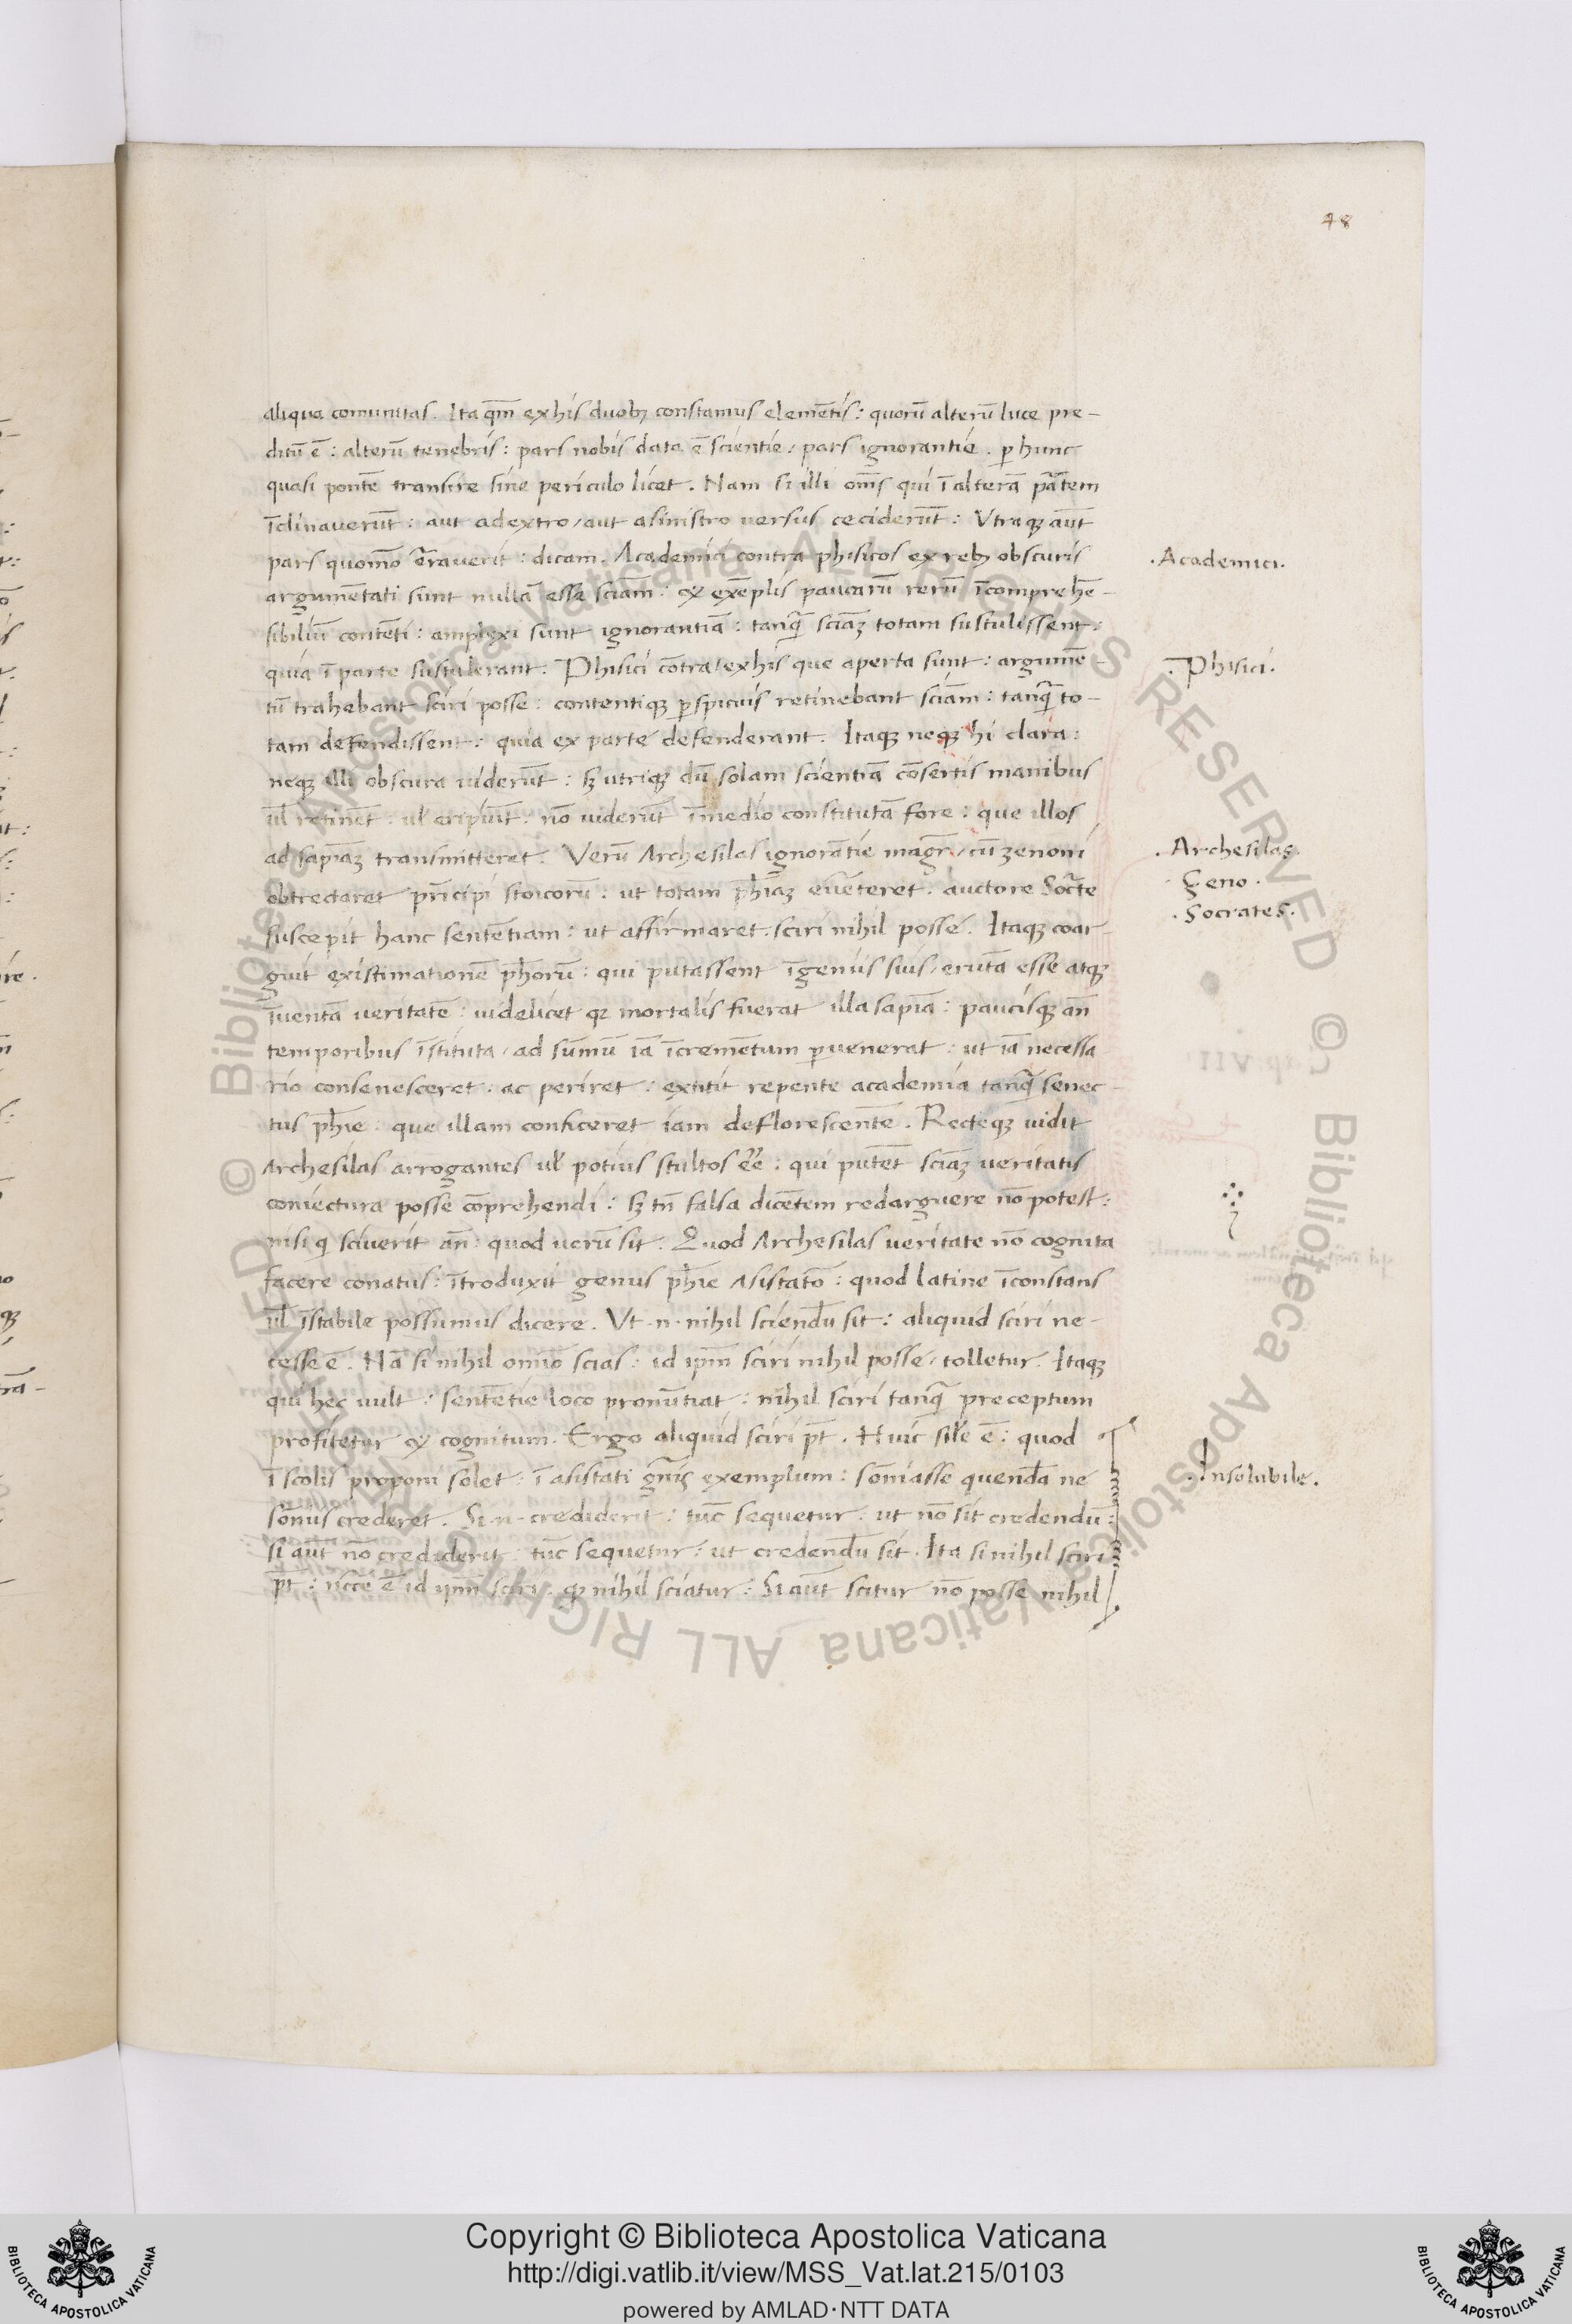 48
aliqua comunitas. Ita qm̄ ex his duobꝫ constamus elemētis: quorū alterū luce pre-
ditū ē: alterū tenebris: pars nobis data ē scientie / pars ignorantie. ꝑ hunc
quasi pontē transire sine periculo licet. Nam si illi om̄s qui ī alterā ꝑ̄tem
īclinaverūt: aut adextro / aut asinistro versus ceciderūt: Utraqꝫ aūt
pars quomō erraverit: dicam. Academici contra phisicos ex rebꝫ obscuris
argumētati sunt nullā esse sciam̄: & exēplis paucarū rerū īcomprehē-
sibiliū contēti: amplexi sunt ignorantiā: tanq̄ sciāꝫ totam sustulissent:
quia ī parte sustulerant. Phisici cōtra / ex his que aperta sunt: argumē-
tū trahebant sciri posse: contentiqꝫ ꝑspicuis retinebant sciam̄: tanq̄ to-
tam defendissent: quia ex parte defenderant. Itaqꝫ neqꝫ hi clara:
neqꝫ illi obscura viderūt: sꝫ utriqꝫ dū solam scientiā cōsertis manibus
ul̄ retinēt: ul̄ eripiūt: nō viderūt ī medio constitutā fore: que illos
ad sapīaꝫ transmitteret. Verū Archesilas ignorātie magr̄ / cū zenoni
obtrectaret prīcipi stoicorū: ut totam ph̄iaꝫ everteret. auctore Socrāte
suscepit hanc sententiam: ut affirmaret. sciri nihil posse. Itaqꝫ coar-
guit existimationē ph̄orū: qui putassent īgeniis suis / erutā esse atqꝫ
īventā veritatē: videlicet qꝫ mortalis fuerat illa sapīa: paucisqꝫ an̄
temporibus īstituta / ad sūmū iā īcremētum ꝑvenerat: ut iā necessa
rio consenesceret. ac periret: extitit repente academia tanq̄ senec-
tus ph̄ie: que illam conficeret iam deflorescentē. Recteqꝫ vidit
Archesilas arrogantes ul̄ potius stultos eē: qui putēt sciāꝫ veritatis
coniectura posse cōprehendi: sꝫ tn̄ falsa dicētem redarguere nō potest:
nisi q̄ sciverit an̄: quod verū sit. Quod Archesilas veritate nō cognita
facere conatus: ītroduxit genus ph̄ie Asistatō: quod latine īconstans
ul̄ īstabile possumus dicere. Ut .n. nihil sciendū sit: aliquid sciri ne-
cesse ē. Nā si nihil omīo scias: id ipm̄ sciri nihil posse / tolletur. Itaqꝫ
qui hec vult: sentētie loco pronūtiat: nihil sciri tanq̄ preceptum
profitetur & cognitum. Ergo aliquid sciri pt̄. Huic sil̄e ē: quod
ī scolis proponi solet: ī asistati gn̄is exemplum: sōniasse quendā ne
sōniis crederet. Si .n. crediderit: tūc sequetur: ut nō sit credendū:
si aūt nō crediderit: tūc sequetur: ut credendū sit. Ita si nihil sciri
pt̄: ncc̄e ē id ipm̄ sciri: qꝫ nihil sciatur: Si aūt scitur nō posse nihil
.Academici.
.Phisici.
.Archesilas.
.Zeno.
.Socrates.
.Insolubile.
© Biblioteca Apostolica Vaticana ALL RIGHTS RESERVED
Copyright © Biblioteca Apostolica Vaticana
http://digi.vatlib.it/view/MSS_Vat.lat.215/0103
powered by AMLAD·NTT DATA
BIBLIOTECA APOSTOLICA VATICANA
BIBLIOTECA APOSTOLICA VATICANA